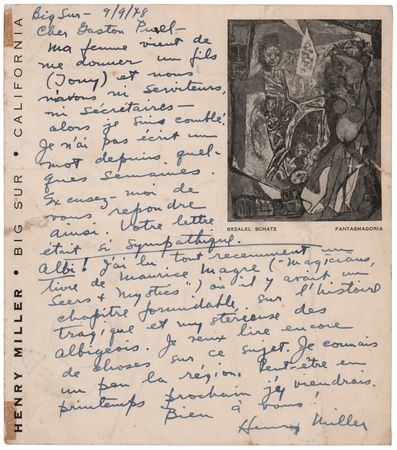 HENRY MILLER • BIG SUR • CALIFORNIA
Big Sur - 9/9/48
Cher Gaston Puel -
Ma femme vient de
me donner un fils
(Tony) et nous
n'avons ni serviteurs,
ni secrétaires -
alors je suis comblé.
Je n'ai pas écrit un
mot depuis quel-
ques semaines.
Excusez-moi de
vous repondre
ainsi. Votre lettre
était si sympathique.
Albi! J'ai lu tout recemment un
livre de Maurice Magre ("Magicians,
Seers & Mystics") où il y avait un
chapitre formidable sur l'histoire
tragique et mysterieuse des
Albigeois. Je veux lire encore
de choses sur ce sujet. Je connais
un peu la région. Peut-être en
printemps prochain j'y viendrais.
Bien à vous!
Henry Miller
BEZALEL SCHATZ
FANTASMAGORIA